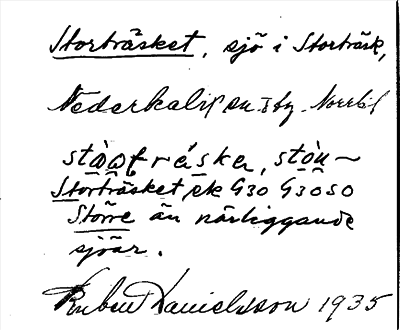 Storträsket, sjö i Storträsk,
Nederkalix sn.
stòrtrǽska, stòu~
Storträsket, ek G30 G30S0
Större än närliggande
sjöar.
Ruben Danielsson 1935